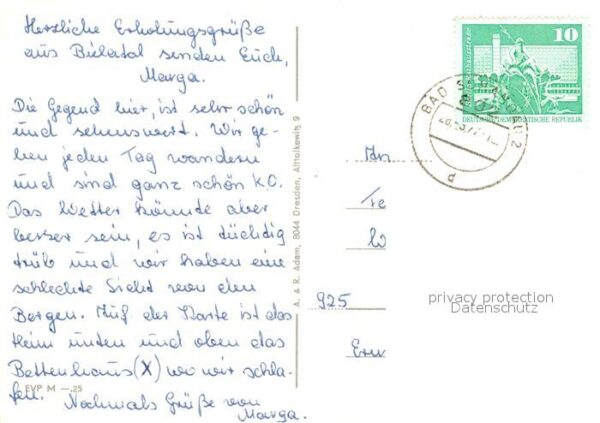 Herzliche Erholungsgrüße
aus Bielatal senden Euch,
Marga.
Die Gegend hier, ist sehr schön
und sehenswert. Wir ge-
hen jeden Tag wandern
und sind ganz schön k.o.
Das Wetter könnte aber
besser sein, es ist tüchtig
trüb und wir haben eine
schlechte Sicht von den
Bergen. Auf der Karte ist das
Heim unten und oben das
Bettenhaus (X) wo wir schla-
fen.
Nochmals Grüße von
Marga.
EVP M —.25
A. & R. Adam, 8044 Dresden, Alttolkewitz 9
10
DEUTSCHE DEMOKRATISCHE REPUBLIK
BAD SCHANDAU 2
d
An
925
privacy protection
Datenschutz